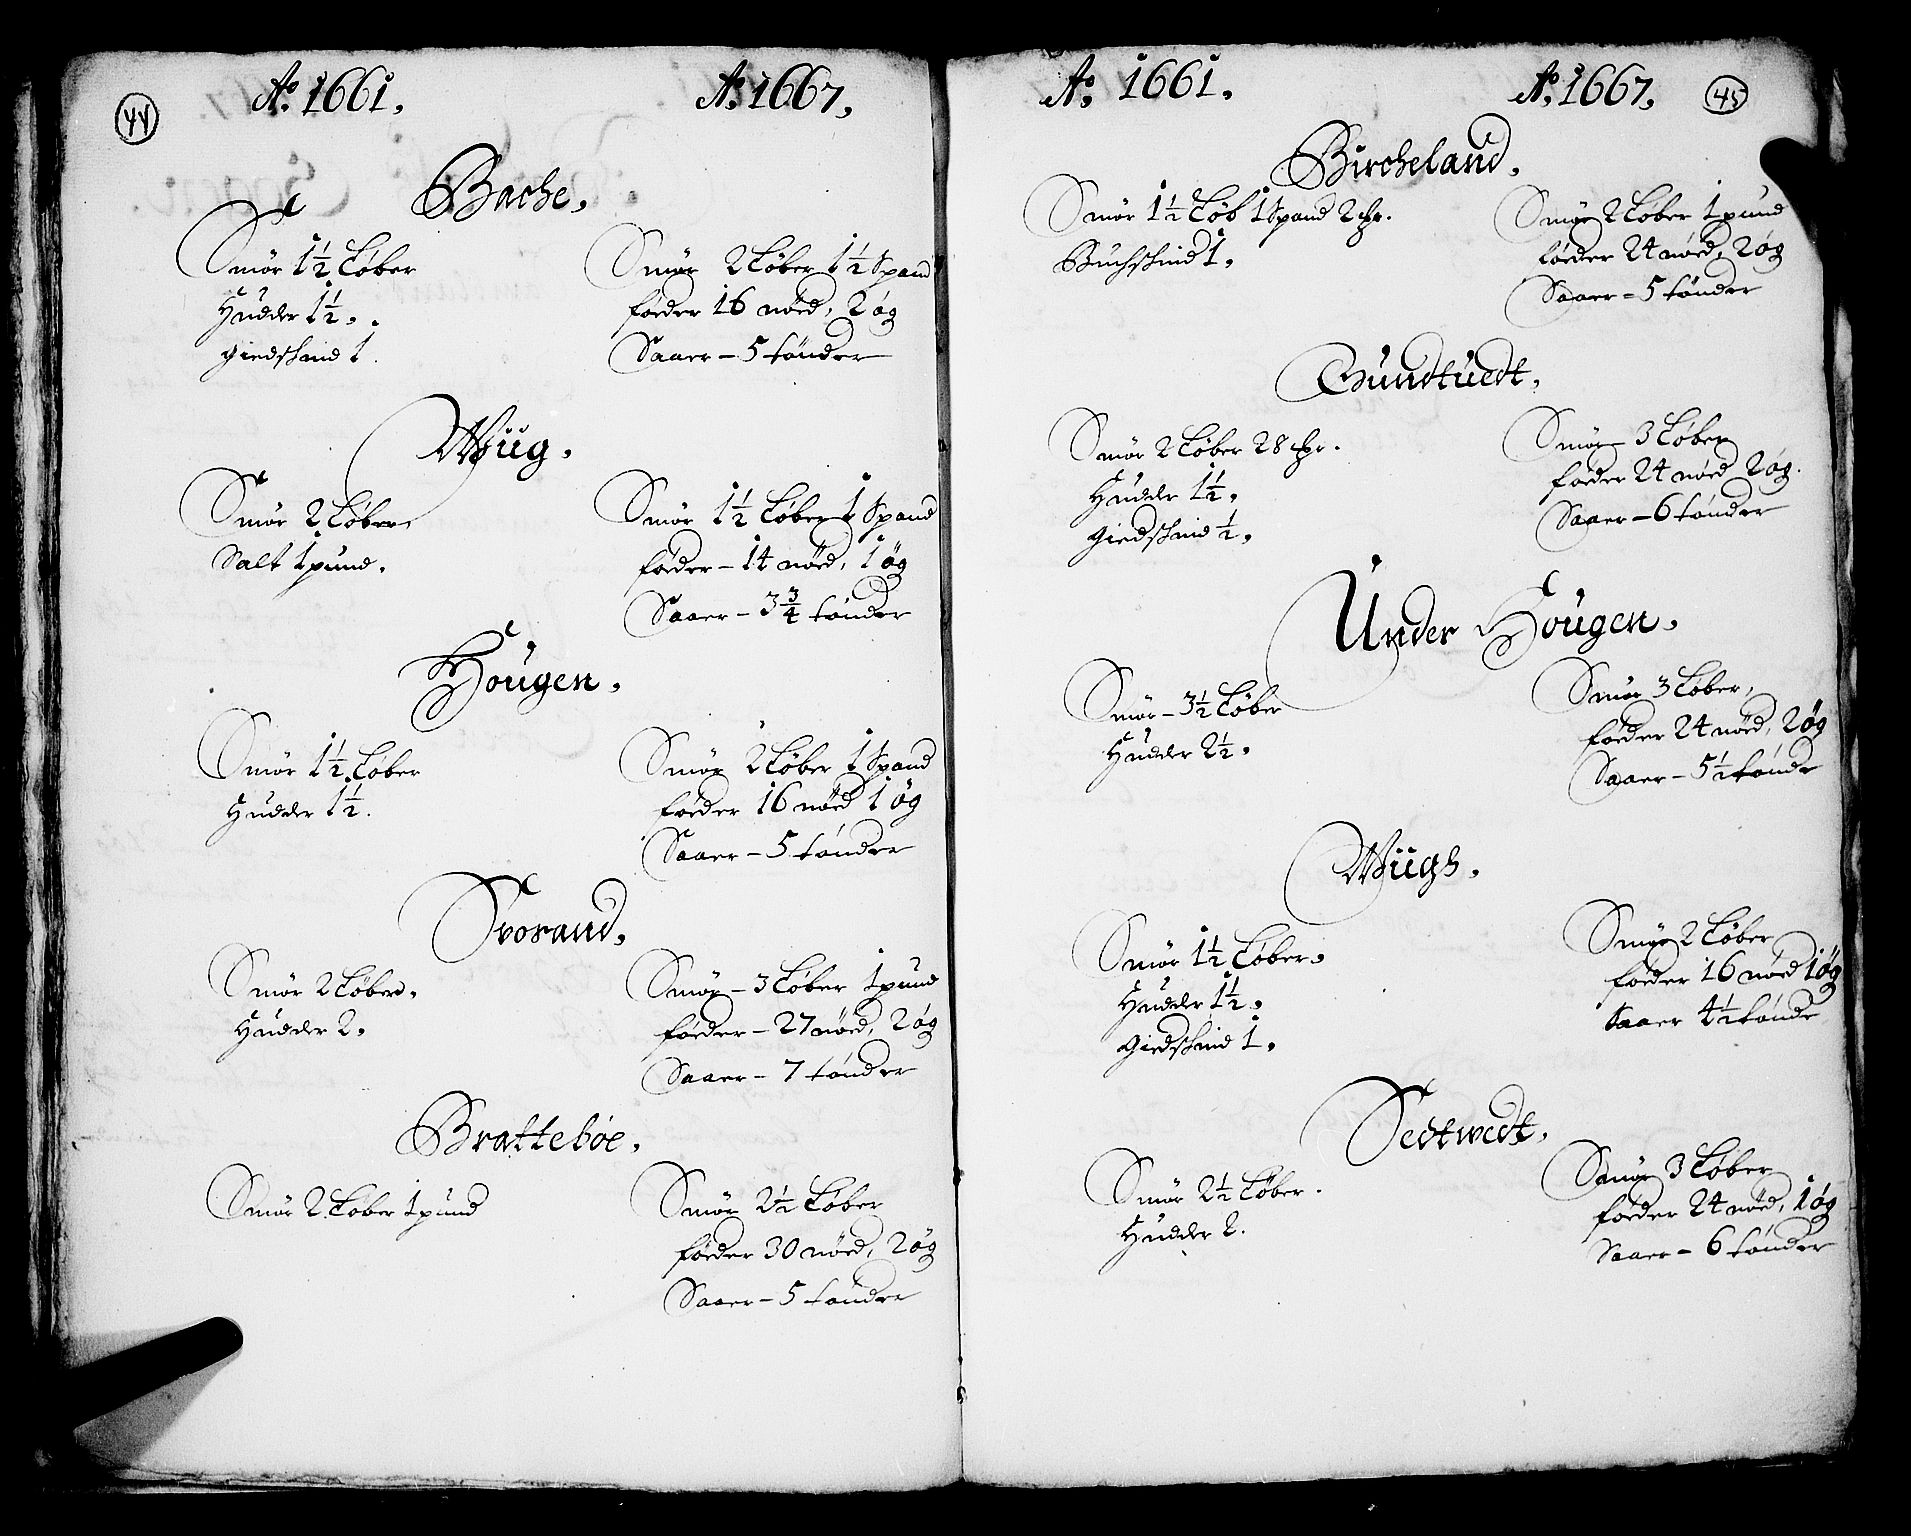 44
Ao. 1661. Ao. 1667.
Bache.
Smör 1½ Löber
Hudder 1½.
giedskind 1.
Smör 2 Löber 1½ Spand
föeder 16 nöed, 2 øg
Saaer - 5 tønder
Wiig.
Smör 2 Löber
Salt 1 pund.
Smör 1½ Löber 1 Spand
föeder - 14 nöed, 1 øg
Saaer - 3¾ tønder
Hougen.
Smör 1½ Löber
Hudder 1½.
Smör 2 Löber 1 Spand
föeder 16 nöed 1 øg
Saaer - 5 tønder
Svorand.
Smör 2 Löber.
Hudder 2.
Smör - 3 Löber 1 pund
föeder - 27 nöed, 2 øg
Saaer - 7 tønder
Brattebøe.
Smör 2 Löber 1 pund
Smör 2½ Löber
föeder 30 nöed, 2 øg
Saaer - 5 tønder
45
Ao. 1661. Ao. 1667.
Bircheland.
Smör 1½ Löb 1 Spand 2 mr.
Buchskind 1.
Smör 2 Löber 1 pund
föeder 24 nöed, 2 øg
Saaer - 5 tønder
Gundtuedt.
Smör 2 Löber 28 mr.
Hudder 1½.
giedskind ½.
Smör 3 Löber
föeder 24 nöed 2 øg.
Saaer - 6 tønder
Under Hougen.
Smör - 3½ Löber
Hudder 2½.
Smör 3 Löber,
föeder 24 nöed, 2 øg
Saaer - 5½ tønde
Wiigh.
Smör 1½ Löber.
Hudder 1½.
Giedskind 1.
Smör 2 Löber
föeder 16 nöed 1 øg
Saaer 4½ tønde
Sedtwedt.
Smör 2½ Löber.
Hudder 2.
Smör 3 Löber
föeder 24 nöed, 1 øg
Saaer - 6 tønder